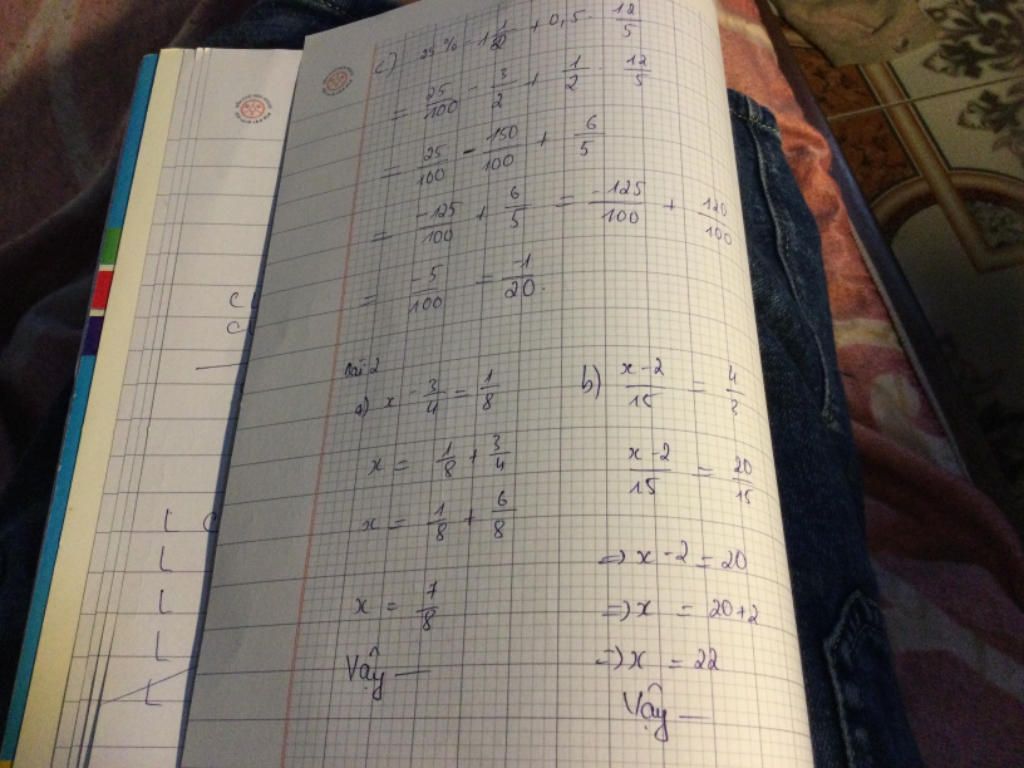 c) 25% - 1 1/20 + 0,5 . 12/5
= 25/100 - 3/2 + 1/2 . 12/5
= 25/100 - 150/100 + 6/5
= -125/100 + 6/5 = -125/100 + 120/100
= -5/100 = -1/20.
Bài 2
a) x - 3/4 = 1/8
x = 1/8 + 3/4
x = 1/8 + 6/8
x = 7/8
Vậy —
b) x-2/15 = 4/3
x-2/15 = 20/15
=> x-2 = 20
=> x = 20+2
=> x = 22
Vậy —